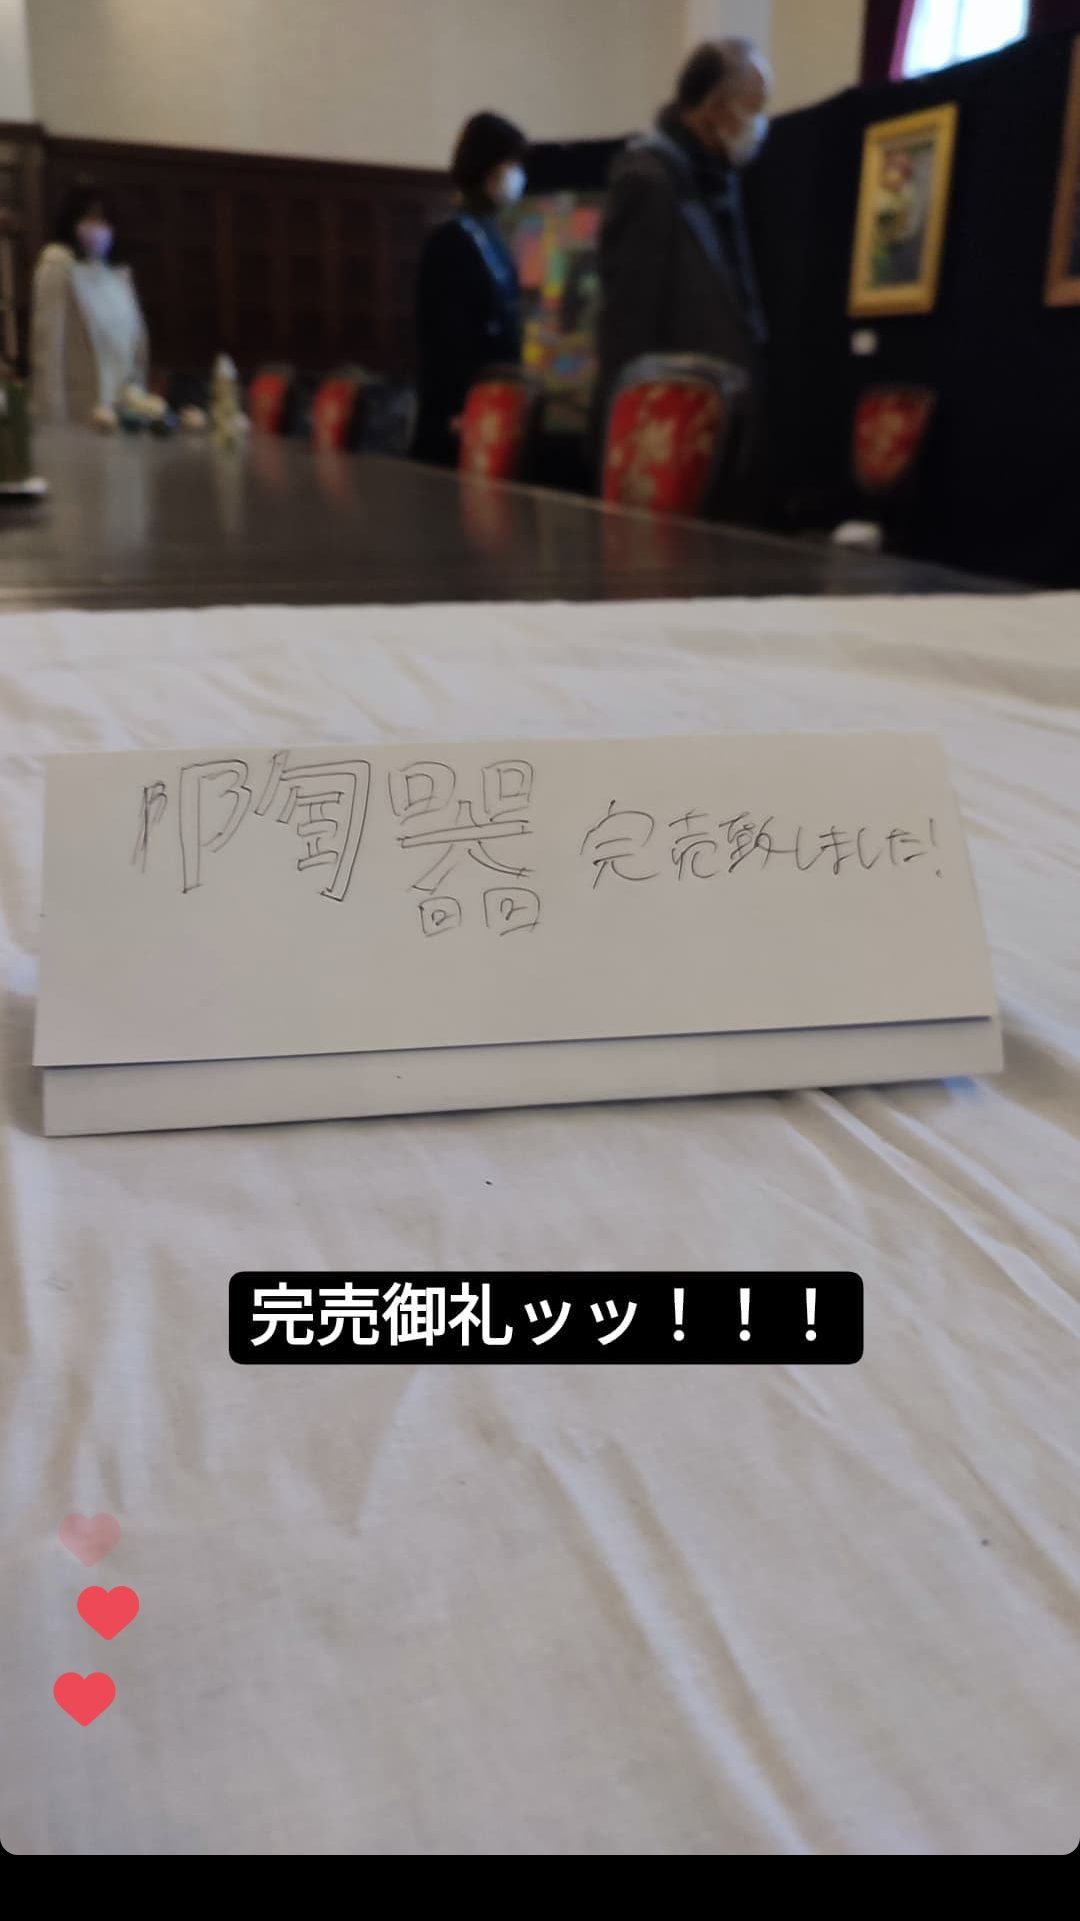 陶器 完売致しました!
完売御礼ッッ！！！